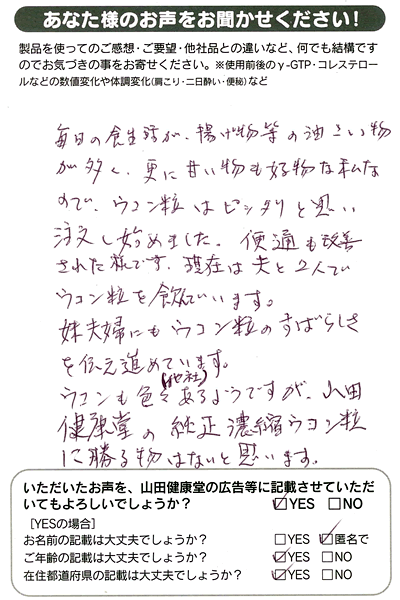 あなた様のお声をお聞かせください！
製品を使ってのご感想・ご要望・他社品との違いなど、何でも結構です
のでお気づきの事をお寄せください。※使用前後のγ-GTP・コレステロー
ルなどの数値変化や体調変化(肩こり・二日酔い・便秘)など
毎日の食生活が、揚げ物等の油さい物
が多く、更に甘い物も好物な私な
ので、ウコン粒はピッタリと思い
注文し始めました。便通も改善
された様です。現在は夫と2人で
ウコン粒を飲んでいます。
妹夫婦にもウコン粒のすばらしさ
を伝え進めています。
ウコンも色々(他社)あるようですが、山田
健康堂の純正濃縮ウコン粒
に勝る物はないと思います。
いただいたお声を、山田健康堂の広告等に記載させていただ
いてもよろしいでしょうか？ ☑YES □NO
[YESの場合]
お名前の記載は大丈夫でしょうか？ □YES ☑匿名で
ご年齢の記載は大丈夫でしょうか？ ☑YES □NO
在住都道府県の記載は大丈夫でしょうか？ ☑YES □NO